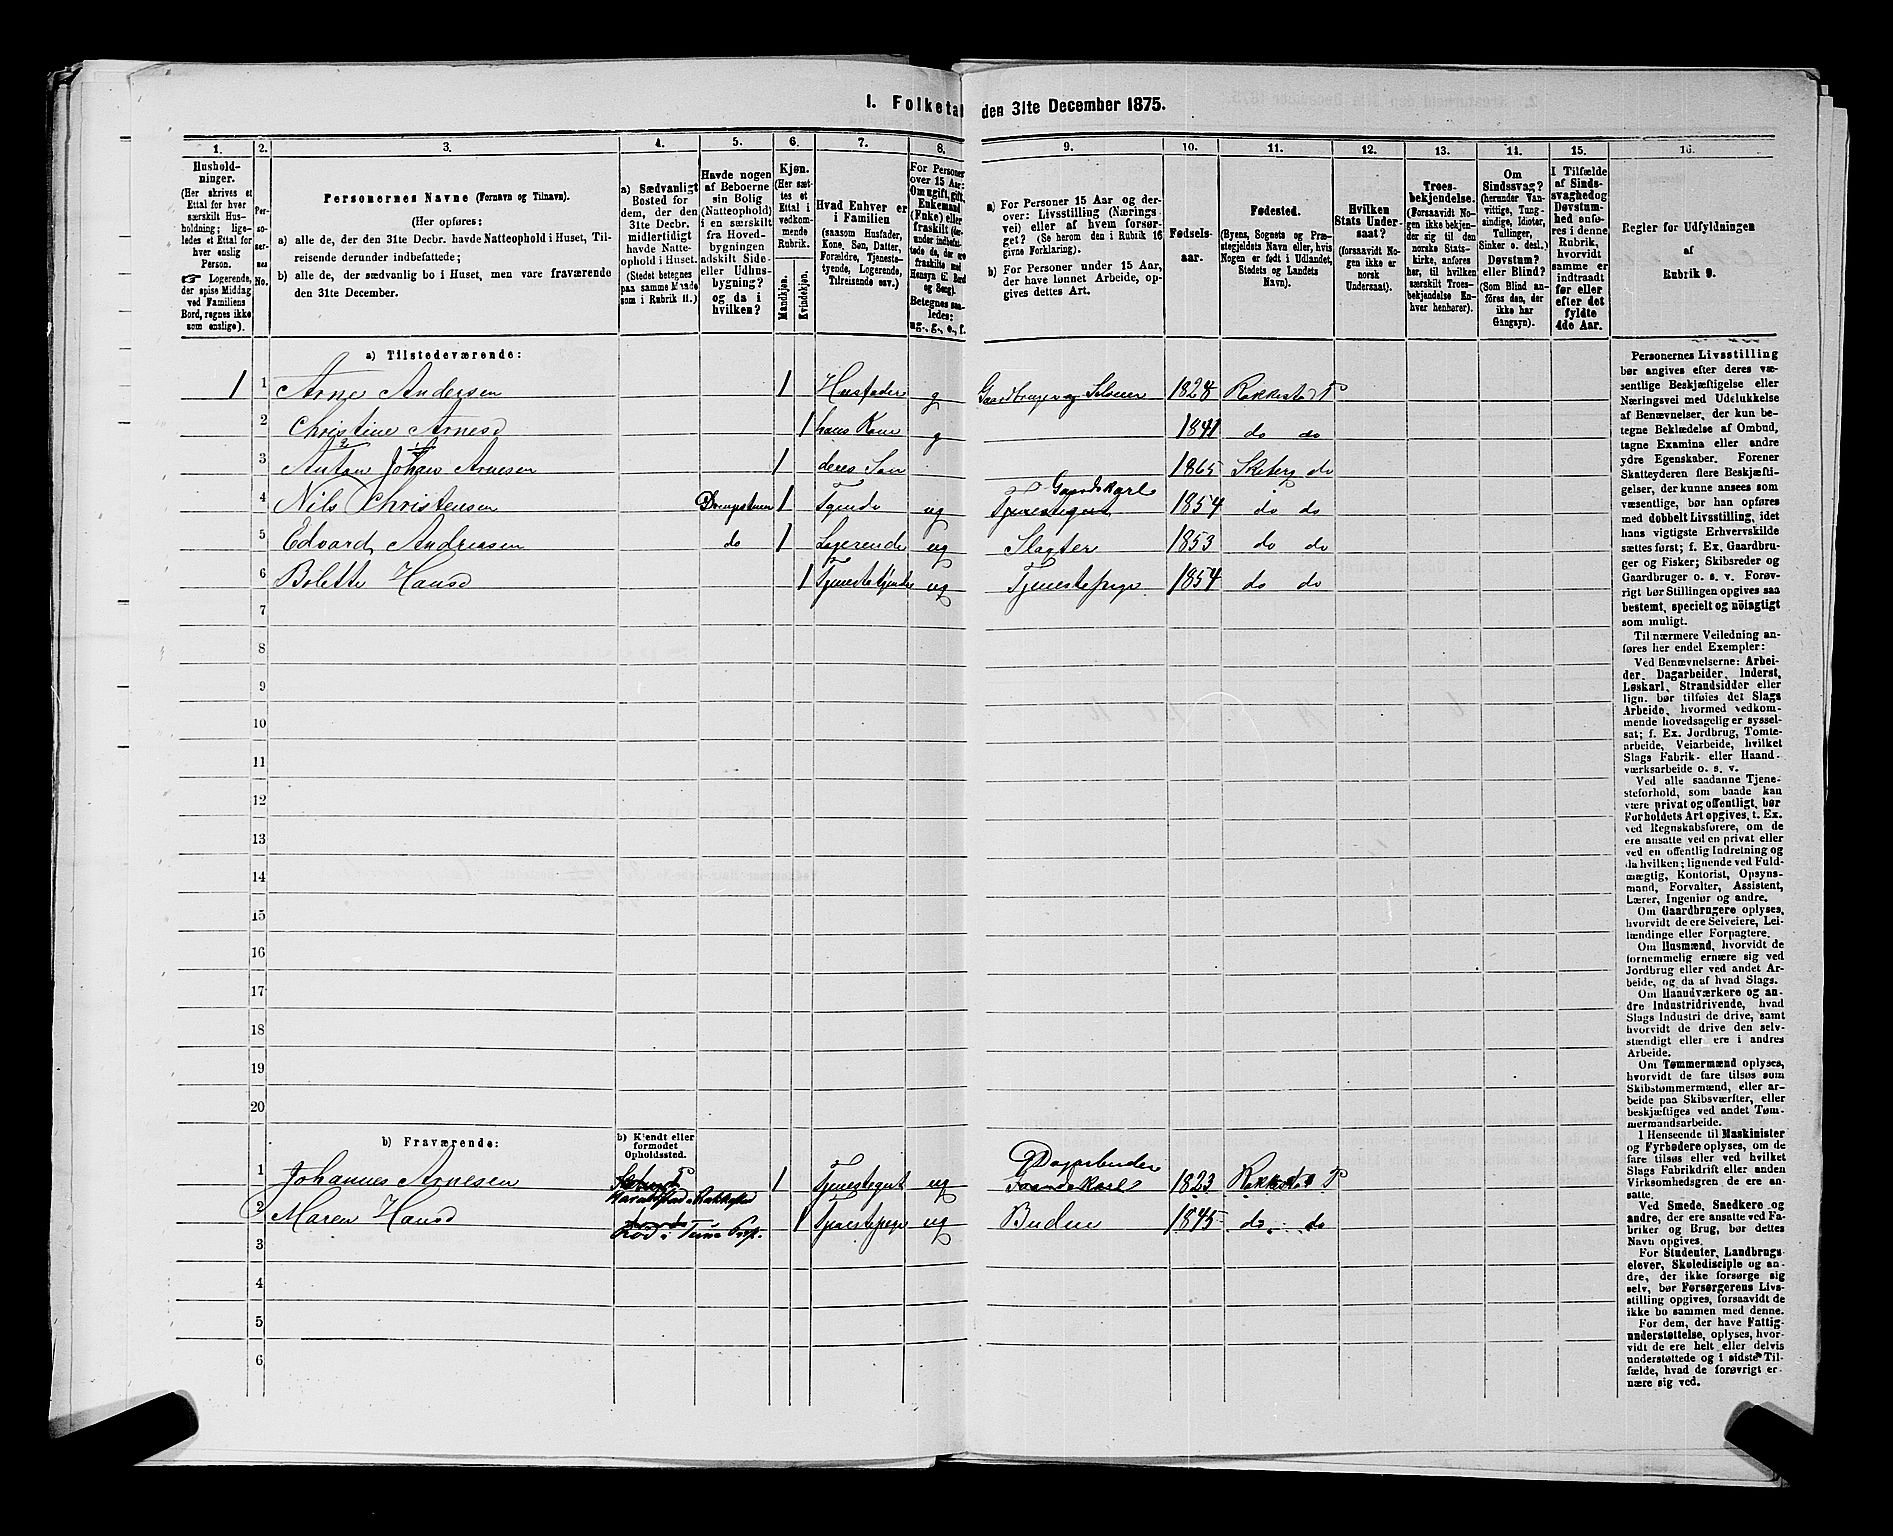 I. Folketal den 31te December 1875.
1. 2. 3. 4. 5. 6. 7. 8. 9. 10. 11. 12. 13. 14. 15. 16.
Hushold-
ninger.
(Her skrives et
Ettal for hver
særskilt Hus-
holdning; lige-
ledes et Ettal for
hver enslig
Person.
☞ Logerende,
der spise Middag
ved Familiens
Bord, regnes ikke
som enslige).
Per-
soner-
nes
No.
Personernes Navne (Fornavn og Tilnavn).
(Her opføres:
a) alle de, der den 31te Decbr. havde Natteophold i Huset, Til-
reisende derunder indbefattede;
b) alle de, der sædvanlig bo i Huset, men vare fraværende
den 31te December.
a) Sædvanligt
Bosted for
dem, der den
31te Decbr.
midlertidigt
havde Natte-
ophold i Huset.
(Stedet betegnes
paa samme Maade
som i Rubrik 11.)
Havde nogen
af Beboerne
sin Bolig
(Natteophold)
i en særskilt
fra Hoved-
bygningen
adskilt Side-
eller Udhus-
bygning?
og da i
hvilken?
Kjøn.
(Her sæt-
tes et
Ettal i
vedkom-
mende
Rubrik.
Mandkjøn.
Kvindekjøn.
Hvad Enhver er
i Familien
(saasom Husfader,
Kone, Søn, Datter,
Forældre, Tjeneste-
tyende, Logerende,
Tilreisende osv.)
For Personer
over 15 Aar:
Om ugift, gift,
Enkemand
(Enke) eller
fraskilt (der-
under indbefat-
tede de, der ere
fraskilte med
Hensyn til Bord
og Seng).
Betegnes saa-
ledes:
ug., g., e., f.
a) For Personer 15 Aar og der-
over: Livsstilling (Nærings-
vei) eller af hvem forsør-
get? (Se herom den i Rubrik 16
givne Forklaring).
b) For Personer under 15 Aar,
der have lønnet Arbeide, op-
gives dettes Art.
Fødsels-
aar.
Fødested.
(Byens, Sognets og Præ-
stegjeldets Navn eller, hvis
Nogen er født i Udlandet,
Stedets og Landets
Navn).
Hvilken
Stats Under-
saat?
(forsaavidt No-
gen ikke er
norsk
Undersaat).
Troes-
bekjendelse.
(Forsaavidt No-
gen ikke bekjen-
der sig til den
norske Stats-
kirke, anføres
her, til hvilken
særskilt Troes-
bekjendelse En-
hver henhører).
Om
Sindssvag?
(herunder Van-
vittige, Tung-
sindige, Idioter,
Tullinger,
Sinker o. desl.)
Døvstum?
eller Blind?
(Som Blind an-
føres den, der
ikke har
Gangsyn).
I Tilfælde
af Sinds-
svaghed og
Døvstum-
hed anfø-
res i denne
Rubrik,
hvorvidt
samme er
indtraadt
før eller
efter det
fyldte
4de Aar.
Regler for Udfyldningen
af
Rubrik 9.
a) Tilstedeværende:
1 1 Arne Andersen 1 Husfader g Gaardbruger og Selveier 1824 Rakkestad P
2 Christine Arnesd 1 hans Kone g 1841 do do
3 Anton Johan Arnesen 1 deres Søn 1865 Skiberg do
4 Nils Christensen Drengestuen 1 Tyende ug Gaardskarl Tjenestegut 1854 do do
5 Edvard Andresen do 1 Logerende ug Slagter 1853 do do
6 Bolette Hansd 1 Tjenestetyende ug Tjenestepige 1854 do do
7
8
9
10
11
12
13
14
15
16
17
18
19
20
b) Fraværende:
b) Kjendt eller
formodet
Opholdssted.
1 Johannes Arnesen 1 Tjenestegut ug Dagarbeider Gaardskarl 1823 Rakkestad P
2 Maren Hansd 1 Tjenestepige ug Budeie 1845 do do
3
4
5
6
Personernes Livsstilling
bør angives efter deres væ-
sentlige Beskjæftigelse eller
Næringsvei med Udelukkelse
af Benævnelser, der kun be-
tegne Beklædelse af Ombud,
tagne Examina eller andre
ydre Egenskaber. Forener
Skatteyderen flere Beskjæfti-
gelser, der kunne ansees som
væsentlige, bør han opføres
med dobbelt Livsstilling, idet
hans vigtigste Erhvervskilde
sættes først; f. Ex. Gaardbru-
ger og Fisker; Skibsreder og
Gaardbruger o. s. v. Forøv-
rigt bør Stillingen opgives saa
bestemt, specielt og nöiagtigt
som muligt.
Til nærmere Veiledning an-
føres her endel Exempler:
Ved Benævnelserne: Arbei-
der, Dagarbeider, Inderst,
Løskarl, Strandsidder eller
lign. bør tilføies det Slags
Arbeide, hvormed vedkom-
mende hovedsagelig er syssel-
sat; f. Ex. Jordbrug, Tomte-
arbeide, Veiarbeide, hvilket
Slags Fabrik- eller Haand-
værksarbeide o. s. v.
Ved alle saadanne Tjene-
steforhold, som baade kan
være privat og offentligt, bør
Forholdets Art opgives, t. Ex.
ved Regnskabsførere, om de
ere ansatte ved en privat eller
ved en offentlig Indretning og
da hvilken; lignende ved Fuld-
mægtig, Kontorist, Opsyns-
mand, Forvalter, Assistent,
Lærer, Ingeniør og andre.
Om Gaardbrugere oplyses,
hvorvidt de ere Selveiere, Lei-
lændinge eller Forpagtere.
Om Husmænd, hvorvidt de
fornemmelig ernære sig ved
Jordbrug eller ved andet Ar-
beide, og da af hvad Slags.
Om Haandværkere og an-
dre Industridrivende, hvad
Slags Industri de drive, samt
hvorvidt de drive den selv-
stændigt eller ere i andres
Arbeide.
Om Tømmermænd oplyses,
hvorvidt de fare tilsøs som
Skibstømmermænd, eller ar-
beide paa Skibsværfter, eller
beskjæftiges ved andet Tøm-
mermandsarbeide.
I Henseende til Maskinister
og Fyrbødere oplyses, om de
fare tilsøs eller ved hvilket
Slags Fabrikdrift eller anden
Virksomhedsgren de ere an-
satte.
Ved Smede, Snedkere og
andre, der ere ansatte ved Fa-
briker og Brug, bør dettes
Navn opgives.
For Studenter, Landbrugs-
elever, Skoledisciple og an-
dre, der ikke forsørge sig
selv, bør Forsørgerens Livs-
stilling opgives, forsaavidt de
ikke bo sammen med denne.
For dem, der have Fattig-
understøttelse, oplyses, hvor-
vidt de ere helt eller delvis
understøttede og i sidste Til-
fælde, hvad de forøvrigt er-
nære sig ved.